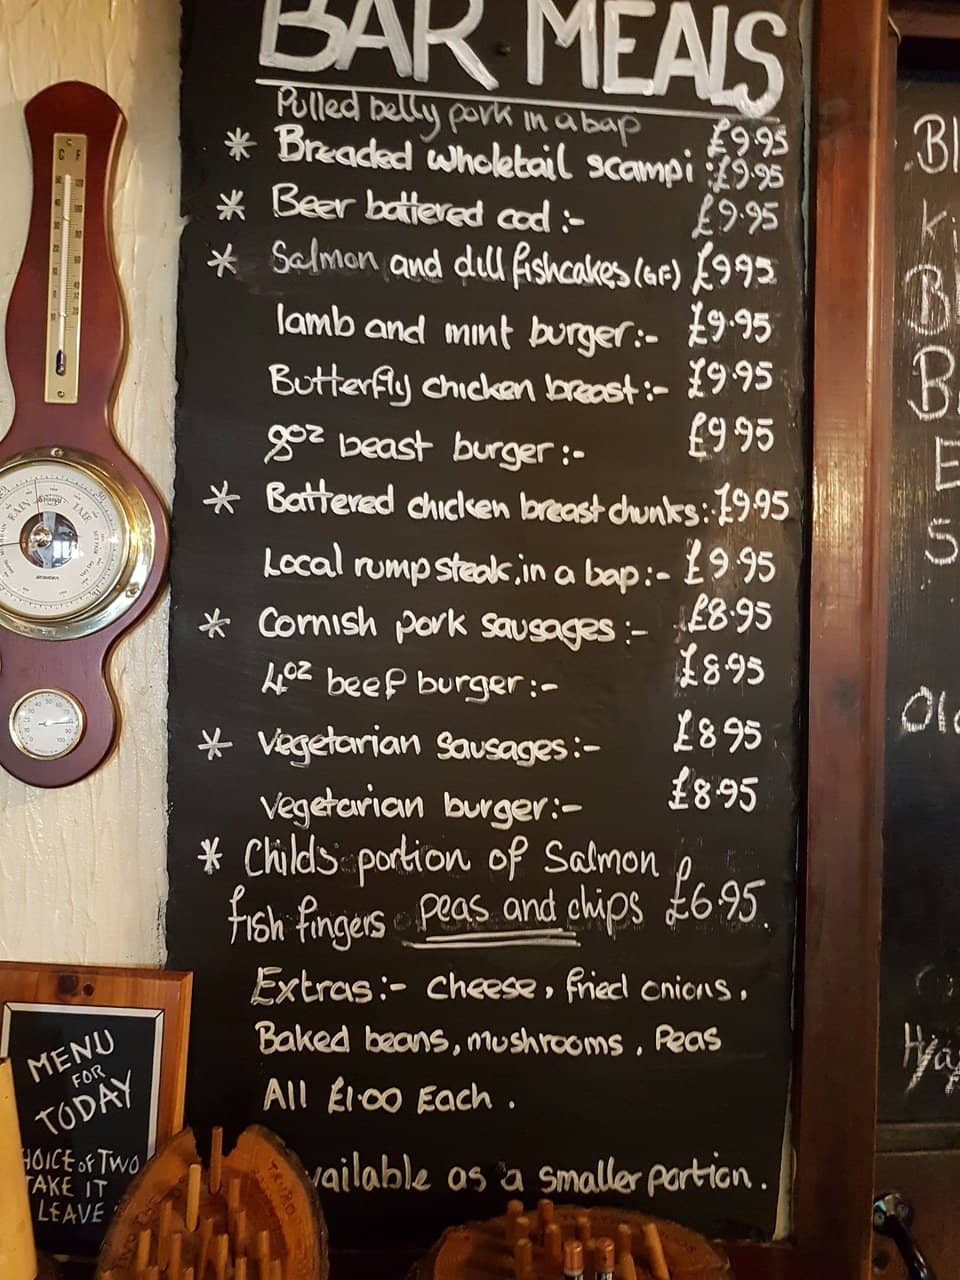 BAR MEALS
Pulled belly pork in a bap £9.95
* Breaded wholetail scampi : £9.95
* Beer battered cod :- £9.95
* Salmon and dill fishcakes (GF) £9.95
lamb and mint burger :- £9.95
Butterfly chicken breast :- £9.95
8oz beast burger :- £9.95
* Battered chicken breast chunks :. £9.95
Local rump steak, in a bap :- £9.95
* Cornish pork sausages :- £8.95
4oz beef burger :- £8.95
* Vegetarian sausages :- £8.95
vegetarian burger :- £8.95
* Childs portion of Salmon
fish fingers peas and chips £6.95.
Extras :- cheese, fried onions,
Baked beans, mushrooms, Peas
All £1.00 Each.
vailable as a smaller portion.
MENU
FOR
TODAY
HOICE of TWO
TAKE IT
LEAVE